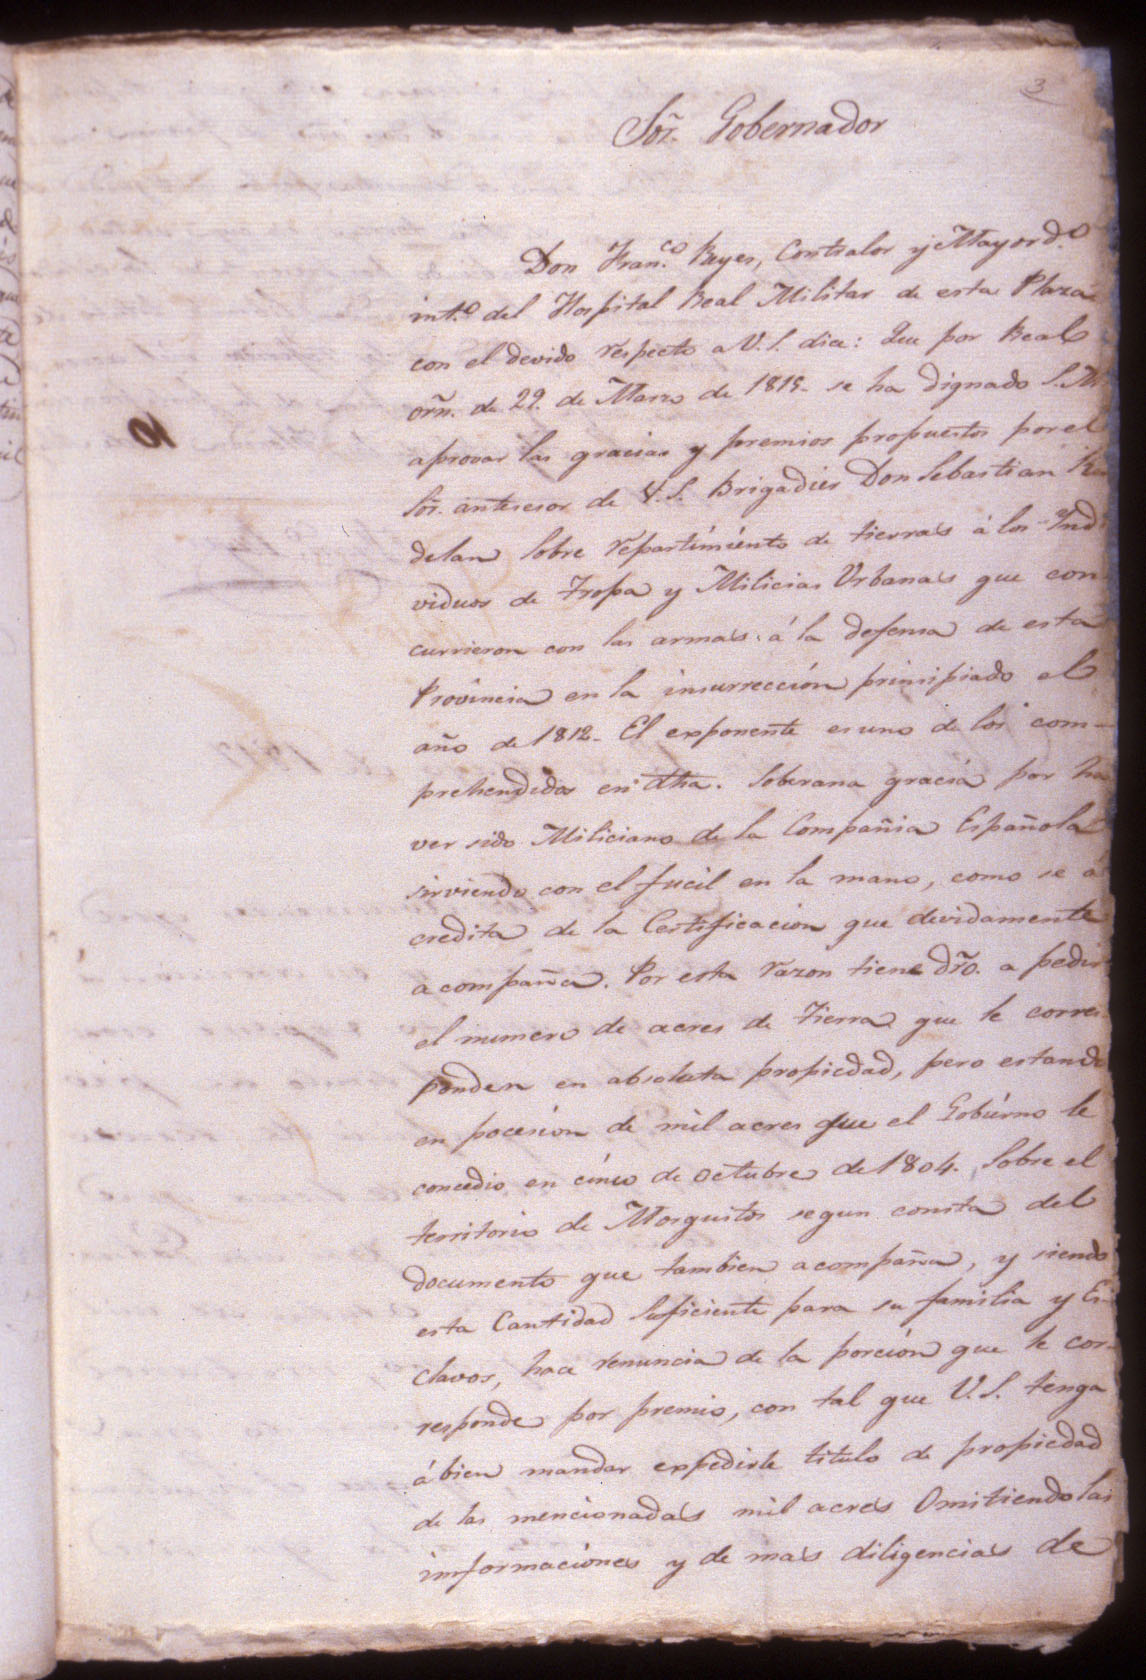 3
Sor̃. Gobernador
Don Fran.co Reyes, Contralor y Mayord.o
int.o del Hospital Real Militar de esta Plaza
con el devido respecto a V.S. dice: Que por Real
orñ. de 29. de Marzo de 1815. se ha dignado S.M
aprovar las gracias y premios propuestos por el
Sor̃. antecesor de V.S. Brigadier Don Sebastian Kin
delan sobre repartimiento de tierras á los Yndi
viduos de tropa y Milicias Urbanas que con
currieron con las armas á la defensa de esta
Provincia en la insurrección prinsipiado el
año de 1812. El exponente es uno de los com-
prehendidos en dha. Soberana gracia por ha
ver sido Miliciano de la Compañia Española
sirviendo con el fucil en la mano, como se á
credita de la Certificacion que devidamente
acompaña. Por esta razon tiene dr̃o. a pedir
el numero de acres de tierra que le corres
ponden en absoluta propiedad, pero estando
en pocesion de mil acres que el Gobierno le
concedio en cinco de octubre de 1804. Sobre el
territorio de Mosquitos segun consta del
documento que tambien acompaña, y siendo
esta Cantidad suficiente para su familia y Es
clavos, hace renuncia de la porción que le cor-
responde por premio, con tal que V.S. tenga
á bien mandar expedirle titulo de propiedad
de las mencionadas mil acres Omitiendo las
informaciones y de mas diligencias de